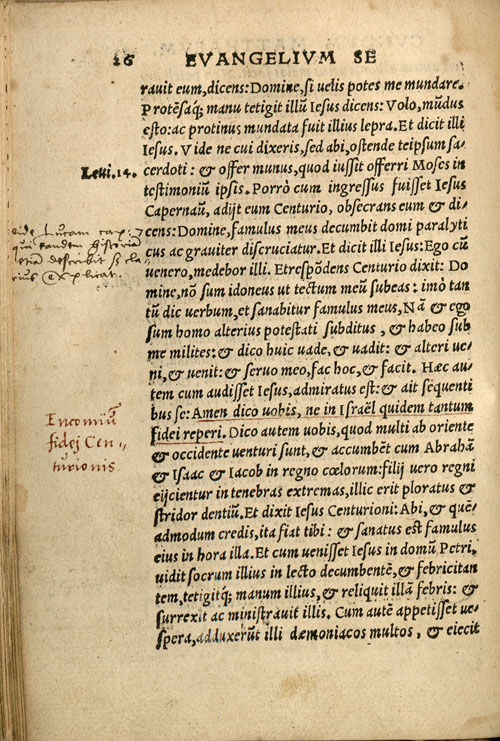 26 EVANGELIVM SE
rauit eum, dicens: Domine, si uelis potes me mundare.
Protẽsaq; manu tetigit illũ Iesus dicens: Volo, mũdus
esto: ac protinus mundata fuit illius lepra. Et dicit illi
Iesus. Vide ne cui dixeris, sed abi, ostende teipsum sa-
Leui.14.
cerdoti: & offer munus, quod iussit offerri Moses in
testimoniũ ipsis. Porrò cum ingressus fuisset Iesus
Capernaũ, adijt eum Centurio, obsecrans eum & di-
vide Lucam cap: 7
qui eandem historiam
describit & cla
rius explicat.
cens: Domine, famulus meus decumbit domi paralyti
cus ac grauiter discruciatur. Et dicit illi Iesus: Ego cũ
uenero, medebor illi. Et respõdens Centurio dixit: Do
mine, nõ sum idoneus ut tectum meũ subeas: imò tan
tũ dic uerbum, et sanabitur famulus meus, Nã & ego
sum homo alterius potestati subditus, & habeo sub
me milites: & dico huic uade, & uadit: & alteri ue-
ni, & uenit: & seruo meo, fac hoc, & facit. Hæc au-
tem cum audisset Iesus, admiratus est: & ait sequenti
bus se: Amen dico uobis, ne in Israël quidem tantum
Encomiũ
fidej Cen-
turionis
fidei reperi. Dico autem uobis, quod multi ab oriente
& occidente uenturi sunt, & accumbẽt cum Abrahã
& Isaac & Iacob in regno cœlorum: filij uero regni
eijcientur in tenebras extremas, illic erit ploratus &
stridor dentiũ. Et dixit Iesus Centurioni: Abi, & quẽ-
admodum credis, ita fiat tibi: & sanatus est famulus
eius in hora illa. Et cum uenisset Iesus in domũ Petri,
uidit socrum illius in lecto decumbentẽ, & febricitan
tem, tetigitq; manum illius, & reliquit illã febris: &
surrexit ac ministrauit illis. Cum autẽ appetisset ue-
spera, adduxerũt illi dæmoniacos multos, & eiecit